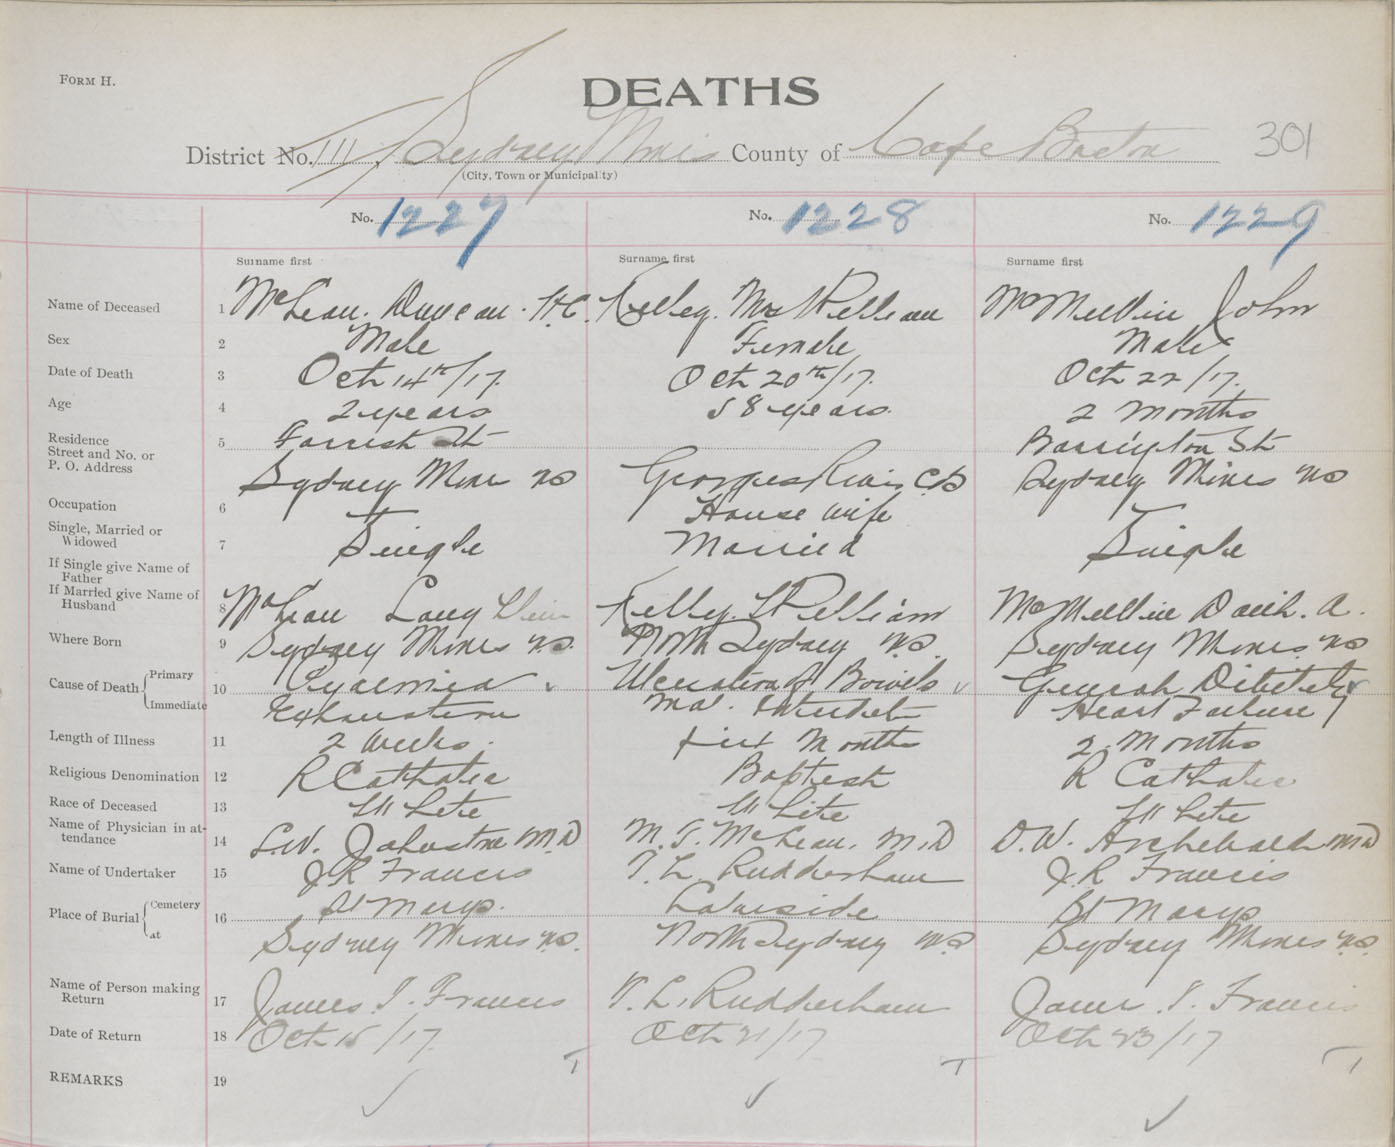 FORM H.
DEATHS
District No. 111 Sydney Mines County of Cape Breton 301
(City, Town or Municipality)
No. 1227 No. 1228 No. 1229
Surname first Surname first Surname first
Name of Deceased 1 McLean. Duncan. H.C. Kelley. Mrs William McMullin John
Sex 2 Male Female Male
Date of Death 3 Oct 14th/17. Oct 20th/17. Oct 22/17.
Age 4 2 years 58 years. 2 Months
Residence 5 Forrest St Barrington St
Street and No. or
P. O. Address Sydney Mines NS Georges River C.B Sydney Mines NS
Occupation 6 House wife
Single, Married or
Widowed 7 Single Married Single
If Single give Name of
Father
If Married give Name of
Husband 8 McLean Kelley. William McMullin A.
Where Born 9 Sydney Mines NS. North Sydney NS. Sydney Mines NS
Cause of Death Primary 10 Ulceration of Bowels General Debility
Immediate Exhaustion Mal. Heart Failure
Length of Illness 11 2 weeks. Months 2 Months
Religious Denomination 12 R Catholic Baptist R Catholic
Race of Deceased 13 White White White
Name of Physician in at-
tendance 14 L.W. Johnstone M.D M. T. McLean. M.D D. W. Archibald MD
Name of Undertaker 15 J R Francis T. L. Rudderham J. R Francis
Place of Burial Cemetery 16 St Marys. Lakeside St Marys
at Sydney Mines NS. North Sydney NS Sydney Mines NS.
Name of Person making
Return 17 James T. Francis T. L. Rudderham James T. Francis
Date of Return 18 Oct 15/17 Oct 21/17 Oct 23/17
REMARKS 19